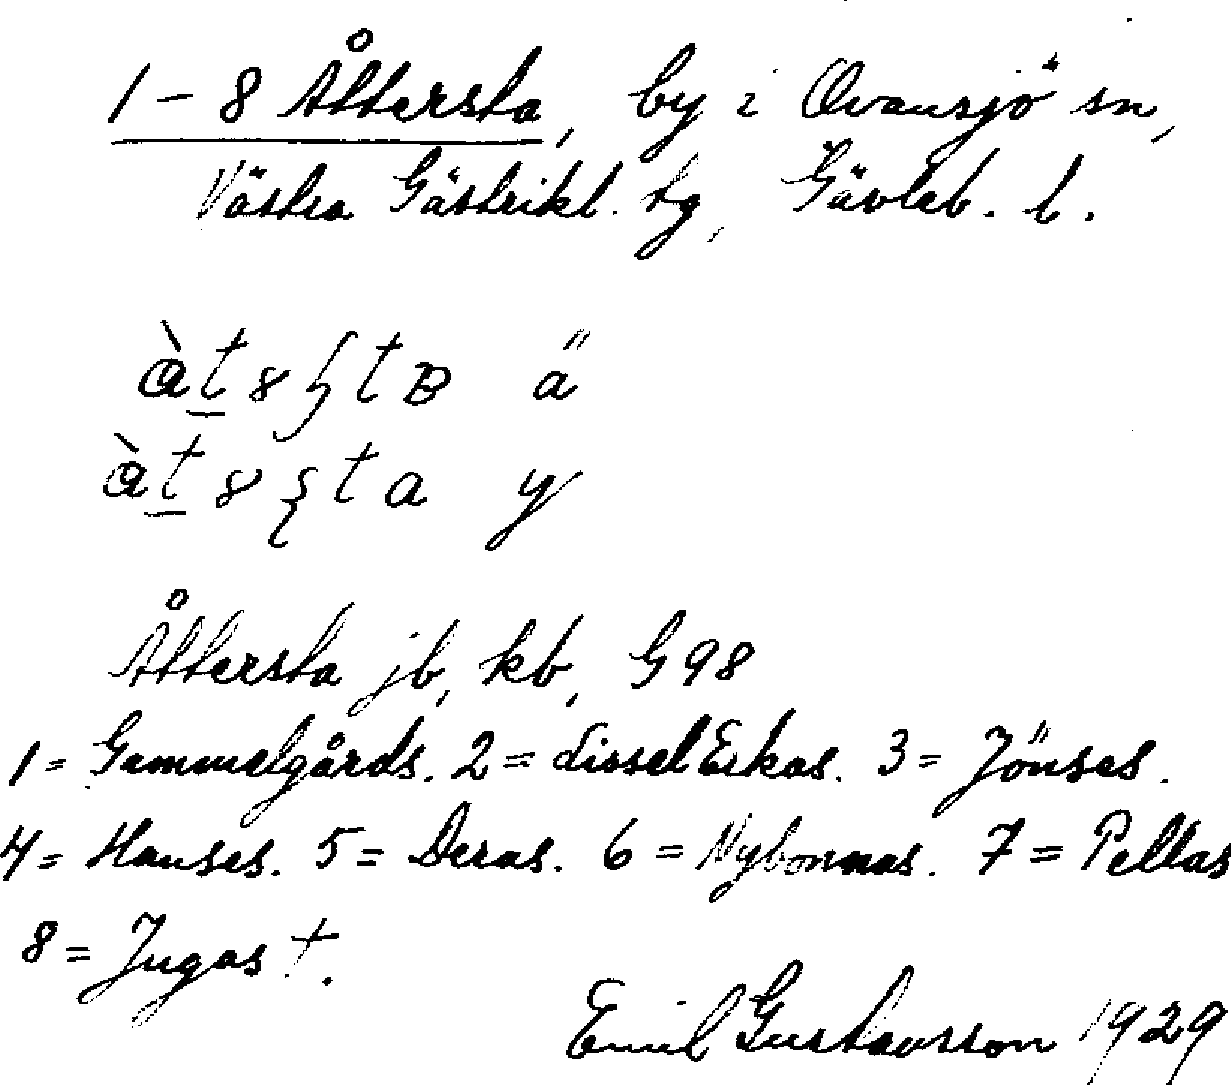 1 – 8 Åttersta, by i Ovansjö sn,
Västra Gästrikl. tg, Gävleb. l.
ä
y
Åttersta jb, kb, G98
1 = Gammelgårds. 2 = LisselErkas. 3 = Jönses.
4 = Hanses. 5 = Deras. 6 = Nybonnas. 7 = Pellas
8 = Jugas †.
Emil Gustavsson 1929